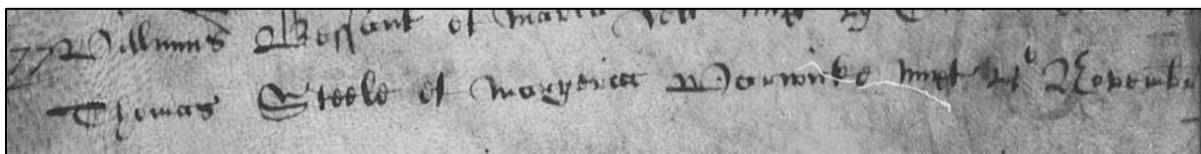 77 Willmus Bossant et Maria
Thomas Steele et Margeria Warwicke nupt Novembr